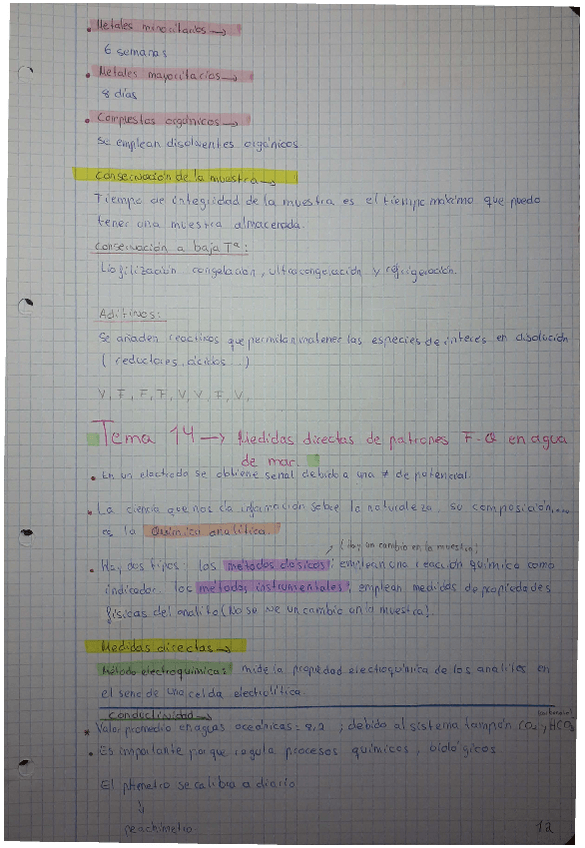 • Metales minoritarios →
6 semanas
• Metales mayoritarios →
8 días
• Compuestos orgánicos →
Se emplean disolventes orgánicos
Conservación de la muestra →
Tiempo de integridad de la muestra es el tiempo máximo que puedo
tener una muestra almacenada.
Conservación a baja Tª:
Liofilización congelación, ultracongelación y refrigeración.
Aditivos:
Se añaden reactivos que permitan mantener las especies de interés en disolución
( reductores, ácidos...)
V, F, F, F, V, V, F, V,
Tema 14 → Medidas directas de patrones F-Q en agua
de mar.
• En un electrodo se obtiene señal debido a una ≠ de potencial.
• La ciencia que nos da información sobre la naturaleza, su composición,...
es la Química analítica.
(Hay un cambio en la muestra)
• Hay dos tipos: los métodos clásicos; emplean una reacción química como
indicador. los métodos instrumentales; emplean medidas de propiedades
físicas del analito (No se ve un cambio en la muestra).
Medidas directas →
Método electroquímicas: mide la propiedad electroquímica de los analitos en
el seno de una celda electrolítica.
Conductividad →
* Valor promedio en aguas oceánicas = 8,2 ; debido al sistema tampón
• Es importante porque regula procesos químicos, biológicos
El phmetro se calibra a diario
↓
peachímetro
12